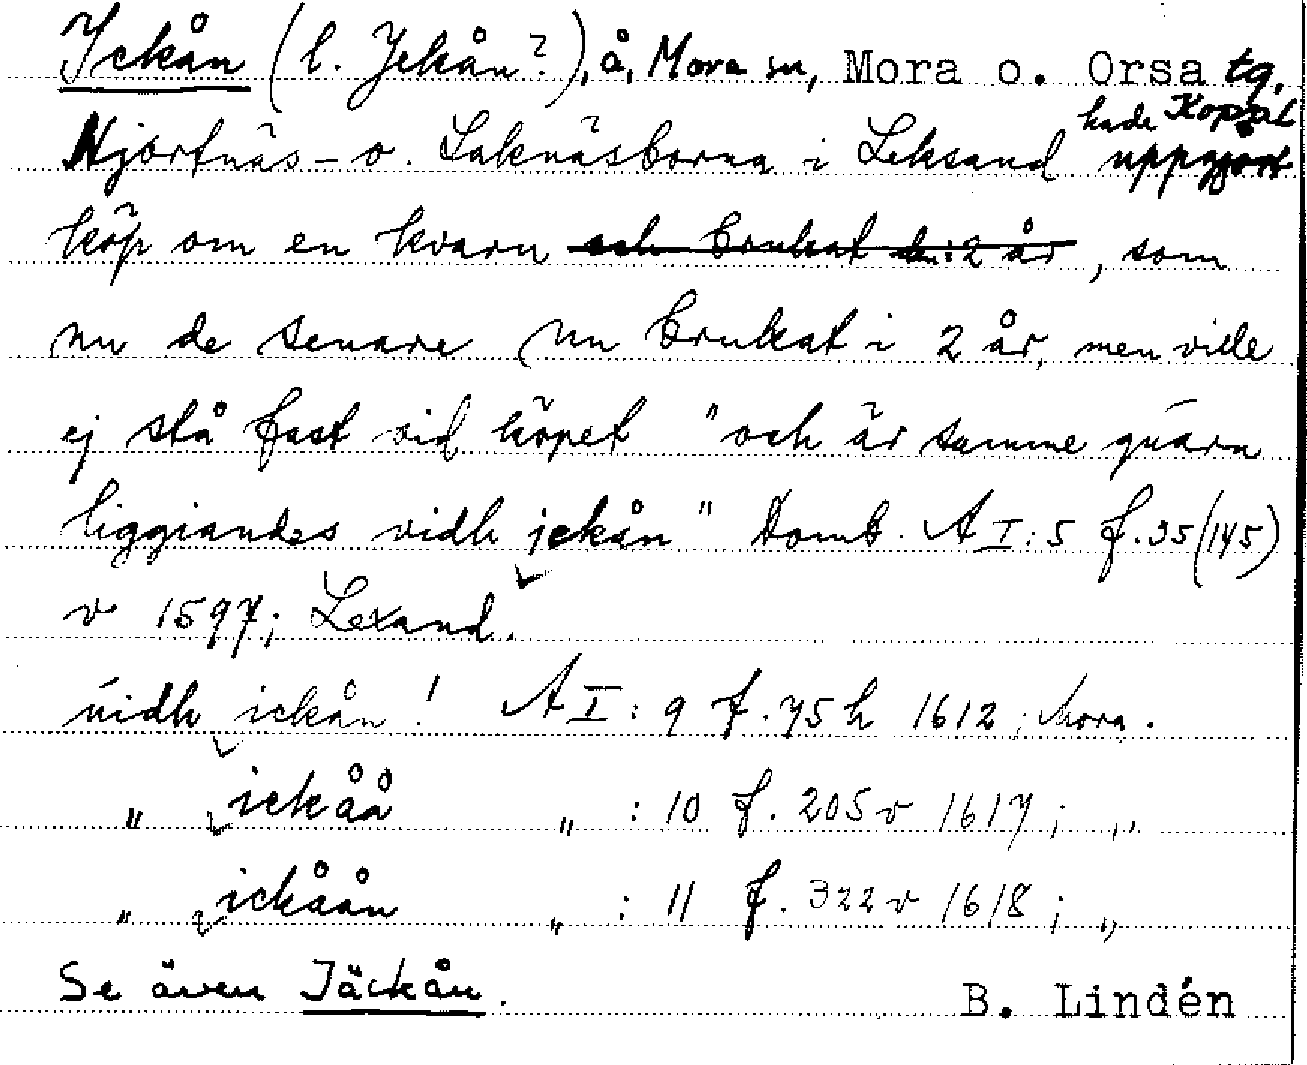 Ickån (l. Jckån?), å, Mora sn, Mora o. Orsa tg.
Kopp. l
Hjortnäs- o. Laknäsborna i Leksand hade uppgjort
köp om en kvarn och brukat den i 2 år, som
nu de senare nu brukat i 2 år, men ville
ej stå fast vid köpet "och är samme quarn
liggiandes vidh jckån" Domb. A I:5 f.35(145)
v 1597; Lexand.
uidh ickån! A I:9 f.75h 1612; Mora.
" ickåå " :10 f. 205v 1617; "
" ickåån " :11 f. 322v 1618; "
Se även Jäckån. B. Lindén